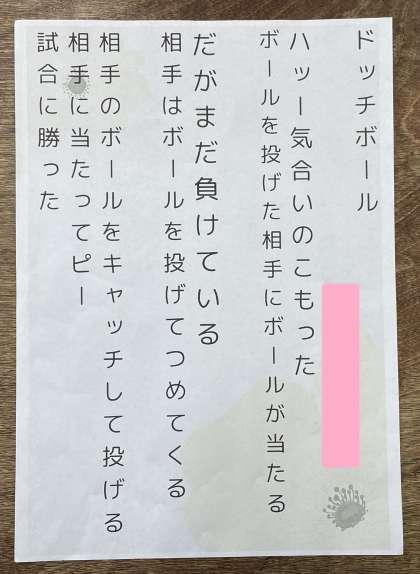 ドッチボール
ハッー気合いのこもった
ボールを投げた相手にボールが当たる
だがまだ負けている
相手はボールを投げてつめてくる
相手のボールをキャッチして投げる
相手に当たってピー
試合に勝った